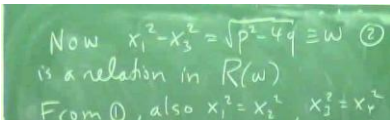 Now x₁² - x₃² = √(p² - 4q) ≡ w ②
is a relation in R(w)
From ①, also x₁² = x₂², x₃² = x₄²